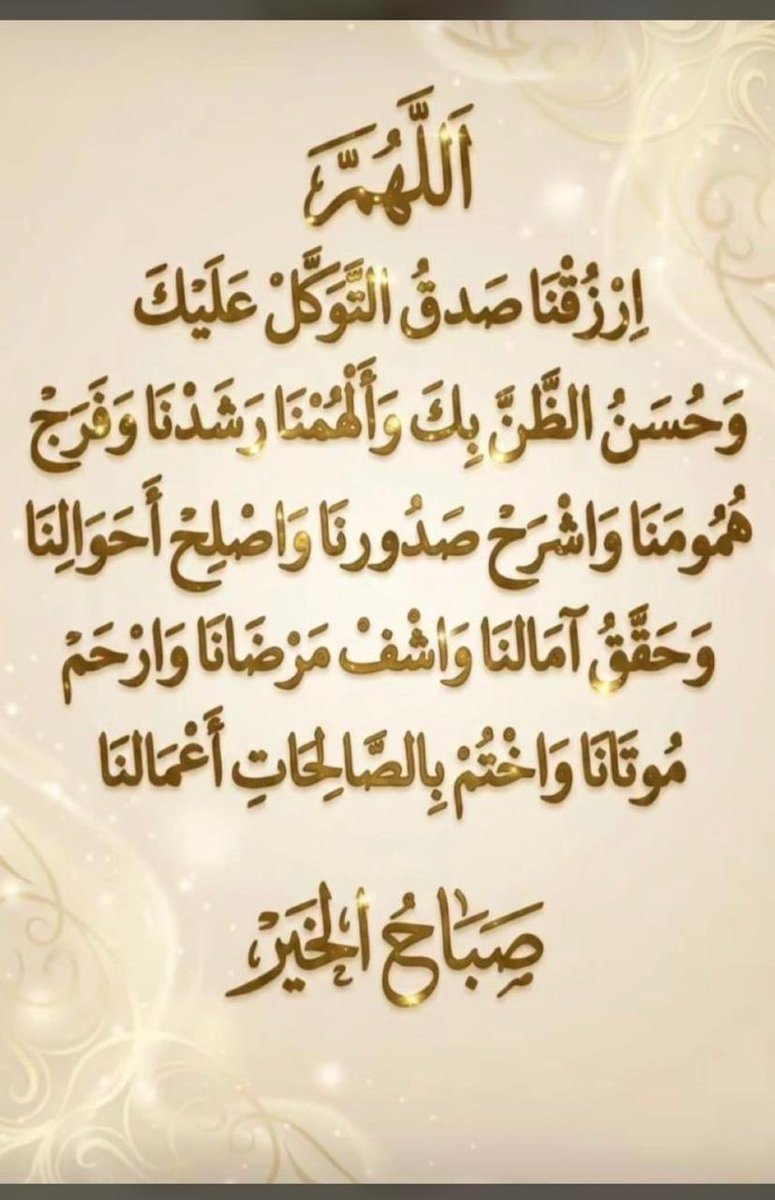 اَللَّهُمَّ
اِرْزُقْنَا صَدقُ التَّوَكَّلْ عَلَيْكَ
وَحُسَنُ الظَّنَّ بِكَ وَأَلْهُمْنَا رَشَدْنَا وَفَرَجْ
هُمُومَنَا وَاشْرَحْ صَدُورنَا وَاصْلِحْ أَحَوَالِنَا
وَحَقَّقُ آمَالنَا وَاشْفْ مَرْضَانَا وَارْحَمْ
مُوتَانَا وَاخْتُمْ بِالصَّالِحَاتِ أَعْمَالنَا
صِبَاحُ الْخَيَرْ